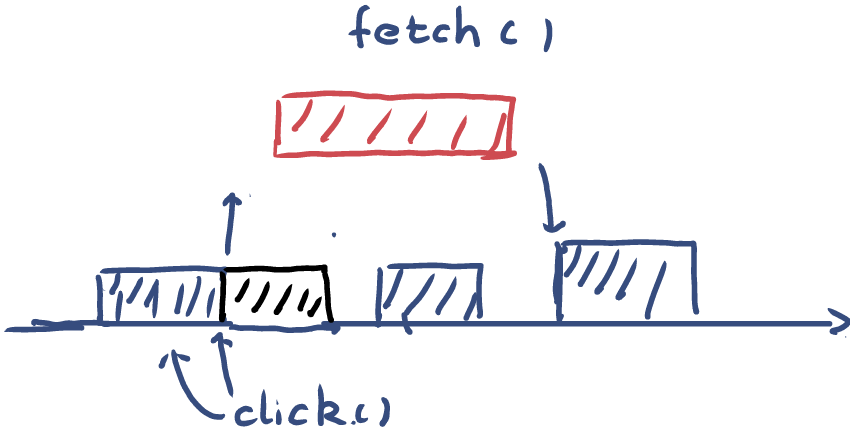 fetch ()
click.()